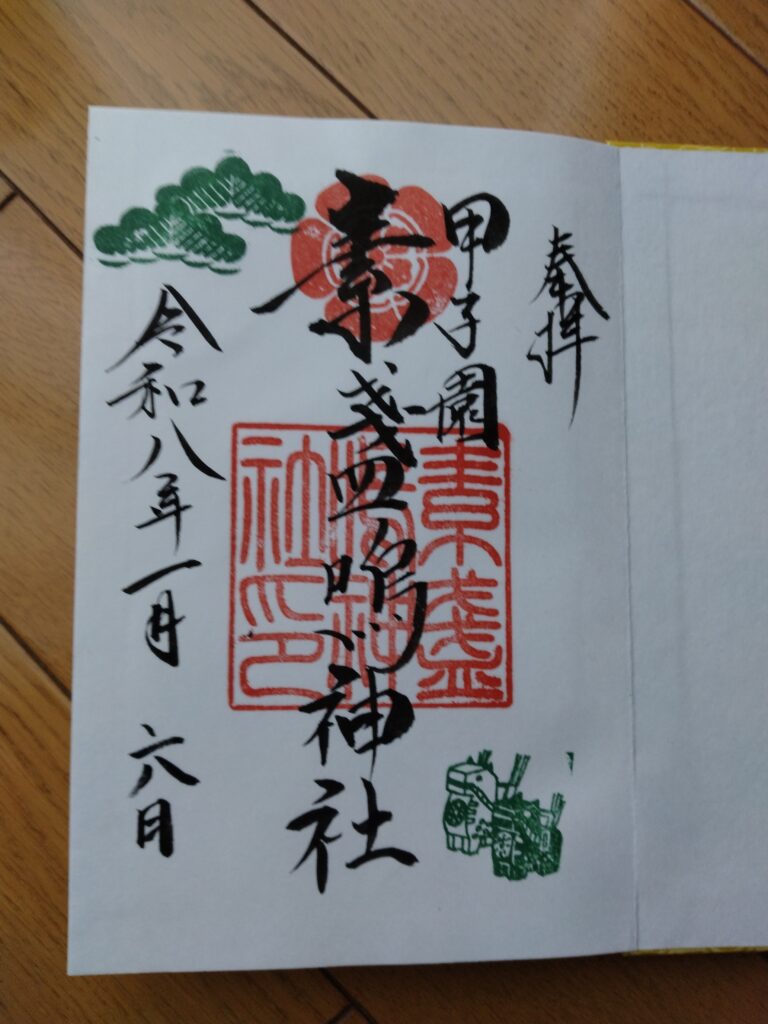 奉拝
甲子園
素盞嗚神社
令和八年一月六日
素盞
嗚神
社印